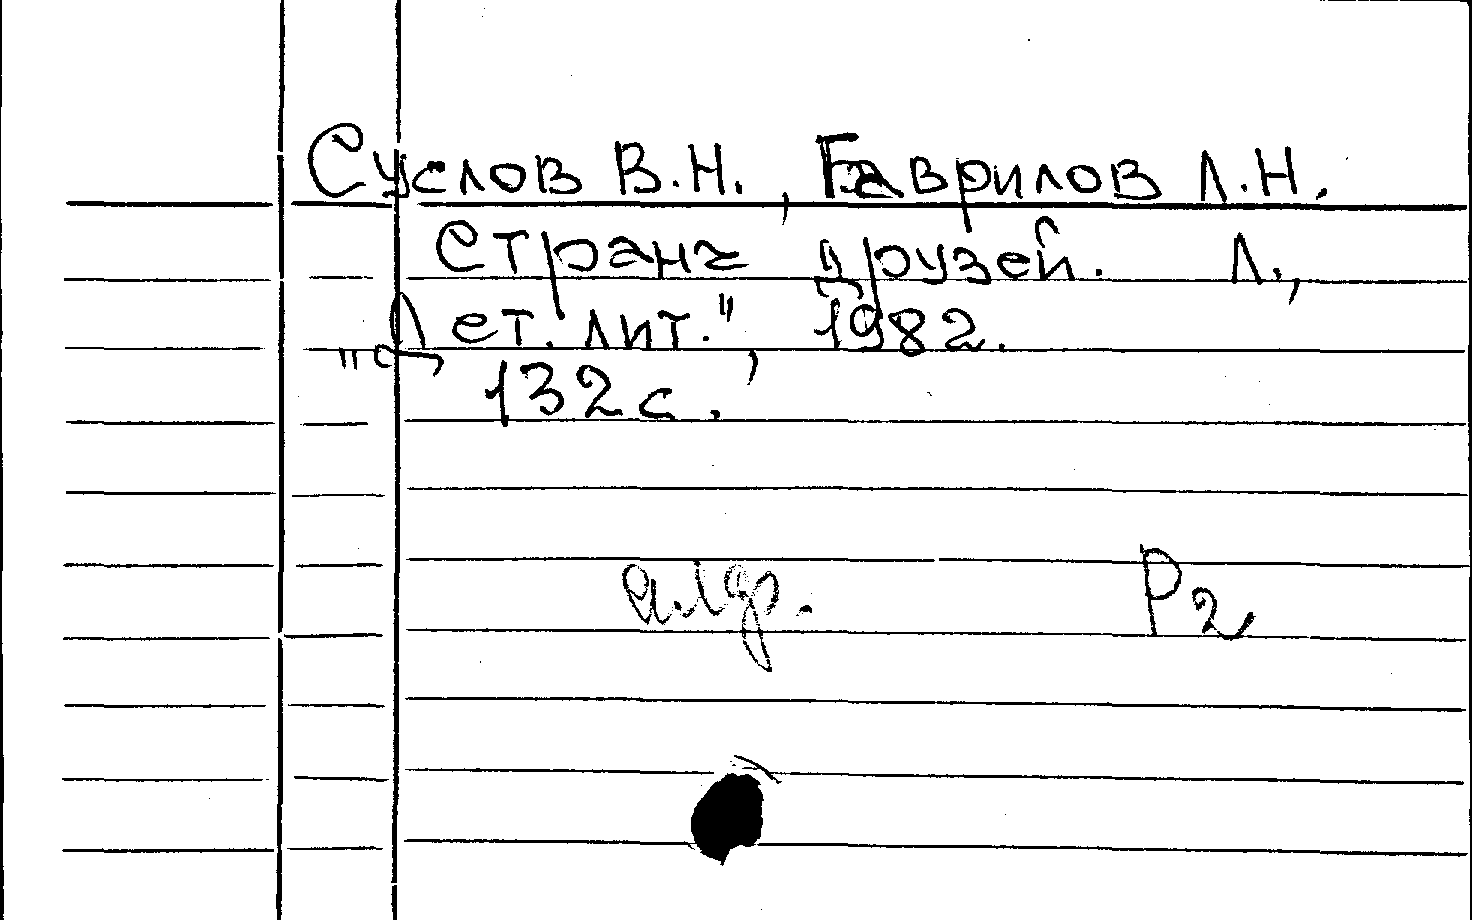 Суслов В.Н., Гаврилов Л.Н.
Страна друзей. Л.,
"Дет. лит.", 1982.
132 с.
Р2